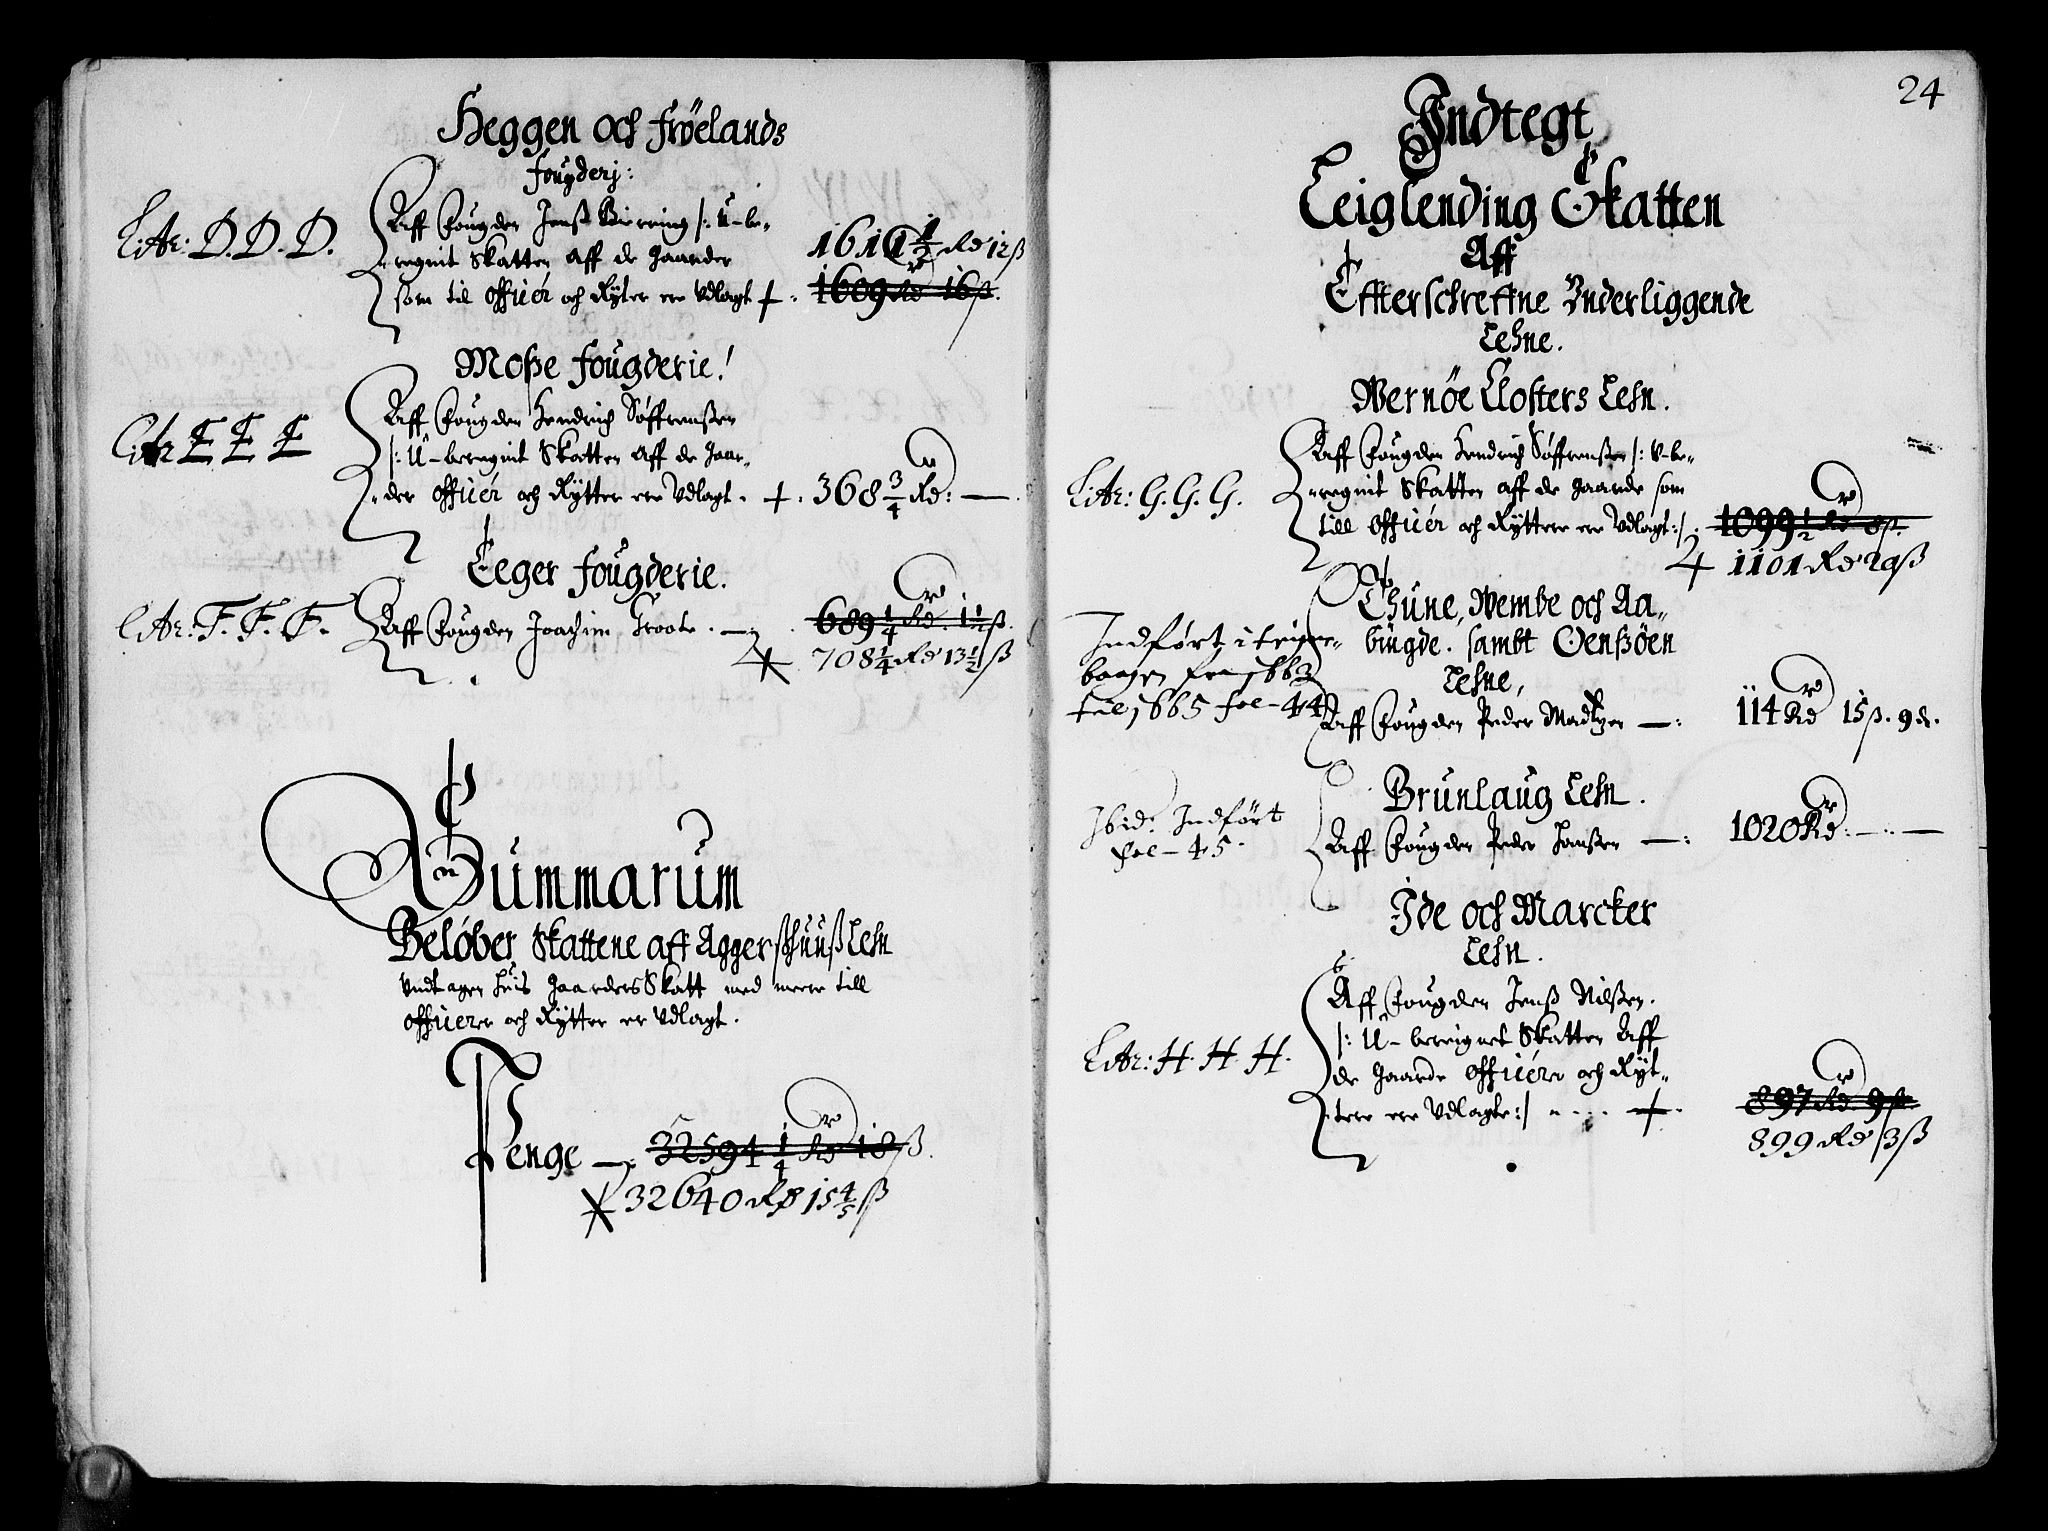 Heggen och Frøelands
Fougderj:
Litr: D. D. D.
Aff Fougden Jenß Bierning /: U-be-
regnit Skatten aff de Gaarder
som til Officér och Rÿter ere Udlagt +.
1611 1/2 Rd 12ß
1609 Rd 16ß.
Moße Fougderie!
Litr E E E
Aff Fougden Hendrich Søffrenßen
/: U-beregnit Skatten aff de Gaar-
der Officér och Rÿtter ere Udlagt. +. 368 3/4 Rd: —.
Eeger Fougderie.
Litr: F. F. F.
Aff Fougden Joachim Groote. —: 689 1/4 Rd. 1 1/2ß.
708 1/4 Rd 13 1/2 ß
Summarum
Beløber Skattene aff Aggerßhuuß Lehn
Undtagen huis Gaarders Skatt med mere till
Officerer och Rÿtter er Udlagt.
Penge —: 32594 1/4 Rd 18ß.
32640 Rd 15 4/5 ß
24
Indtegt
Leiglending Skatten
Aff
Effterschreffne Underliggende
Lehne.
Wernøe Closters Lehn.
Litr: G. G. G.
Aff Fougden Hendrich Søffrenßen /: U-be-
regnit Skatten aff de Gaarde som
till Officér och Rÿttere ere Udlagt:/. 1099 1/2 Rd 8ß.
1101 Rd 20ß
Thune, Wembe och Aa-
bÿugde. sambt Oenßöen
Lehne,
Indført i
bogen fra 1663
til 1665 fol- 44
Aff Fougden Peder Madtzen —: 114 Rd 15ß. 9 d.
Brunlaug Lehn.
Ibid: Indført
fol- 45.
Aff Fougden Peder Hanßen —: 1020 Rd: —:—
Ide och Marcker
Lehn.
Litr: H. H. H.
Aff Fougden Jenß Nilßen.
/: U-bereignet Skatten Aff
de Gaarde Officérer och Rÿt-
tere ere Udlagte:/ - . . . +.
897 Rd. 9ß.
899 Rd 13ß